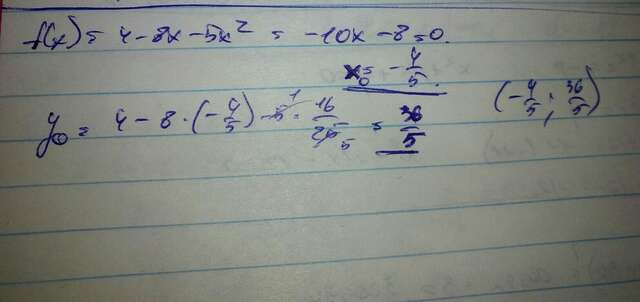 f(x) = 4 - 8x - 5x² = -10x - 8 = 0.
x₀ = -4/5.
y₀ = 4 - 8 · (-4/5) - 5 · 16/25 = 36/5 (-4/5; 36/5)